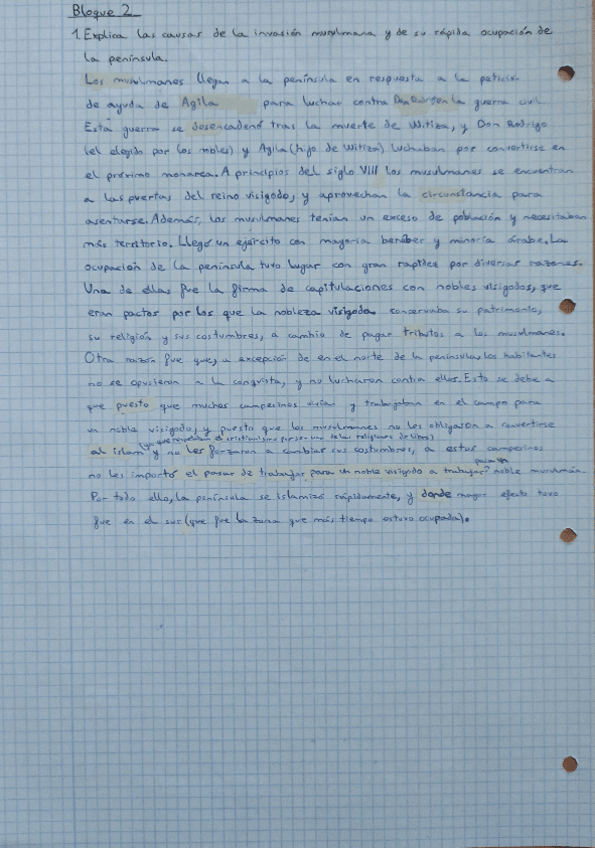 Bloque 2
1. Explica las causas de la invasión musulmana y de su rápida ocupación de
la península.
Los musulmanes llegan a la península en respuesta a la petición
de ayuda de Agila para luchar contra Don Rodrigo en la guerra civil.
Esta guerra se desencadenó tras la muerte de Witiza, y Don Rodrigo
(el elegido por los nobles) y Agila (hijo de Witiza) luchaban por convertirse en
el próximo monarca. A principios del siglo VIII los musulmanes se encuentran
a las puertas del reino visigodo, y aprovechan la circunstancia para
asentarse. Además, los musulmanes tenían un exceso de población y necesitaban
más territorio. Llegó un ejército con mayoría beréber y minoría árabe. La
ocupación de la península tuvo lugar con gran rapidez por diversas razones.
Una de ellas fue la firma de capitulaciones con nobles visigodos, que
eran pactos por los que la nobleza visigoda conservaba su patrimonio,
su religión y sus costumbres, a cambio de pagar tributos a los musulmanes.
Otra razón fue que, a excepción de en el norte de la península, los habitantes
no se opusieron a la conquista, y no lucharon contra ellos. Esto se debe a
que puesto que muchos campesinos vivían y trabajaban en el campo para
un noble visigodo, y puesto que los musulmanes no les obligaron a convertirse
(ya que el cristianismo una de las religiones del libro)
al islam y no les forzaron a cambiar sus costumbres, a estos campesinos
para un
no les importó el pasar de trabajar para un noble visigodo a trabajar noble musulmán.
Por todo ello, la península se islamizó rápidamente, y donde mayor efecto tuvo
fue en el sur (que fue la zona que más tiempo estuvo ocupada).